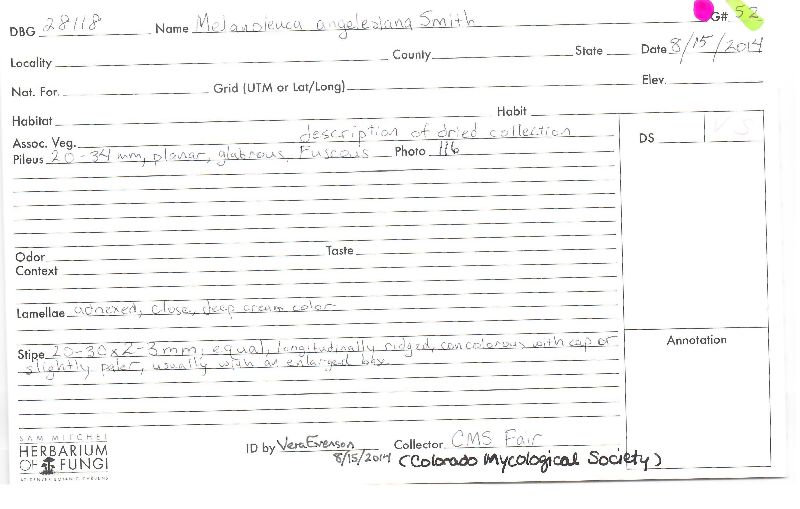 DBG 28118 Name Melanoleuca angelesiana Smith G# 52
Locality County State Date 8/15/2014
Nat. For. Grid (UTM or Lat/Long) Elev.
Habitat Habit
Assoc. Veg. description of dried collection DS VS
Pileus 20-34 mm, planar, glabrous, Fuscous Photo 116
Odor Taste
Context
Lamellae adnexed, close, deep cream color
Stipe 20-30x2-3mm, equal, longitudinally ridged, concolorous with cap or
slightly paler, usually with an enlarged
Annotation
SAM MITCHEL
HERBARIUM
OF FUNGI
AT DENVER BOTANIC GARDENS
ID by Vera Evenson Collector CMS Fair
8/15/2014 (Colorado Mycological Society)